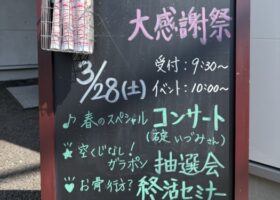 大感謝祭
3/28(土)
受付:9:30~
イベント:10:00~
♪春のスペシャル コンサート
いづみさん)
★空くじなし! ガラポン 抽選会
♥お骨の行方? 終活セミナー